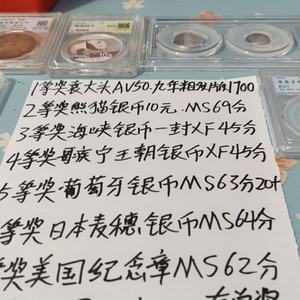 1等奖袁大头AV50.九年粗发版1700
2等奖熊猫银币10元.MS69分
3等奖海峡银币一封XF45分
4等奖哀宁王朝银币XF45分
5等奖葡萄牙银币MS63分20
等奖日本麦穗银币MS64分
奖美国纪念章MS62分